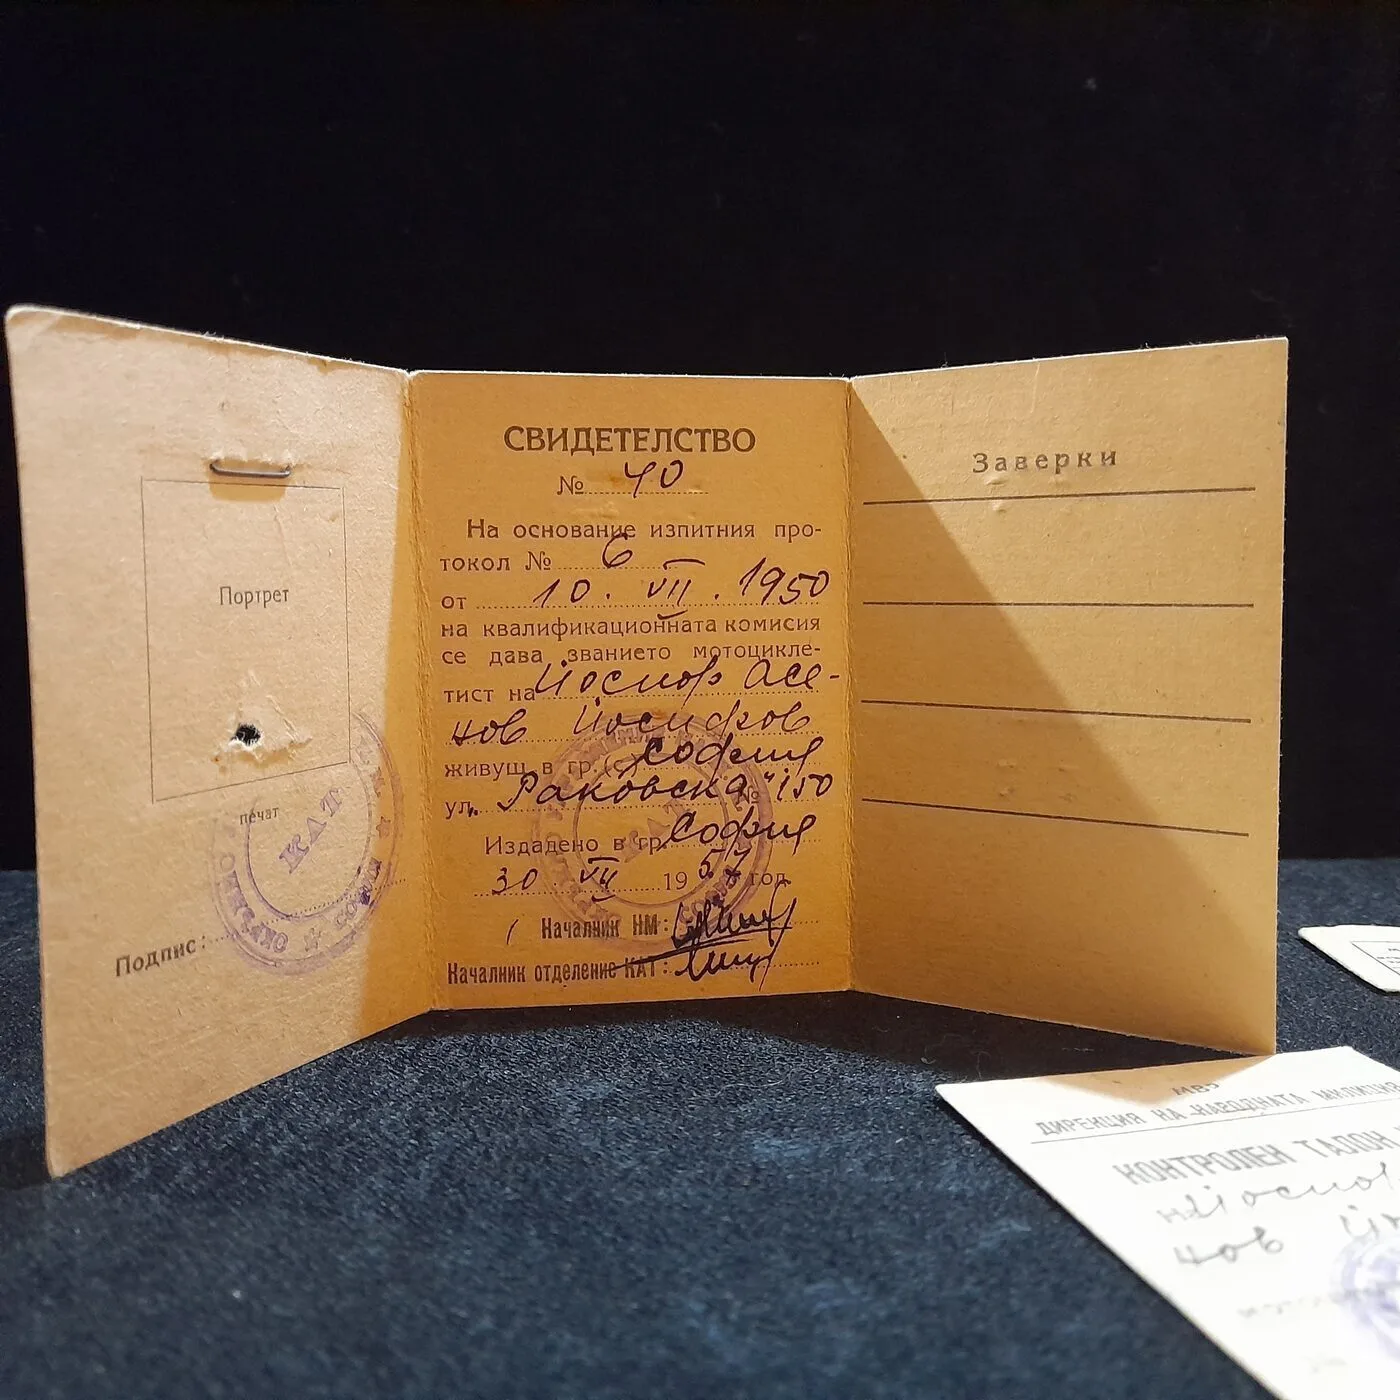 Портрет
печат
КАТ
Подпис:
СВИДЕТЕЛСТВО
№ 40
На основание изпитния про-
токол № 6
от 10. VII. 1950
на квалификационната комисия
се дава званието мотоцикле-
тист на Йосиф Асе-
нов Йосифов
живущ в гр. (с) София
ул. Раковска № 150
Издадено в гр. София
30 VII 1957 год.
Началник НМ:
Началник отделение КАТ:
Заверки
МВР
ДИРЕКЦИЯ НА НАРОДНАТА МИЛИЦИЯ
КОНТРОЛЕН ТАЛОН
Йосиф
нов